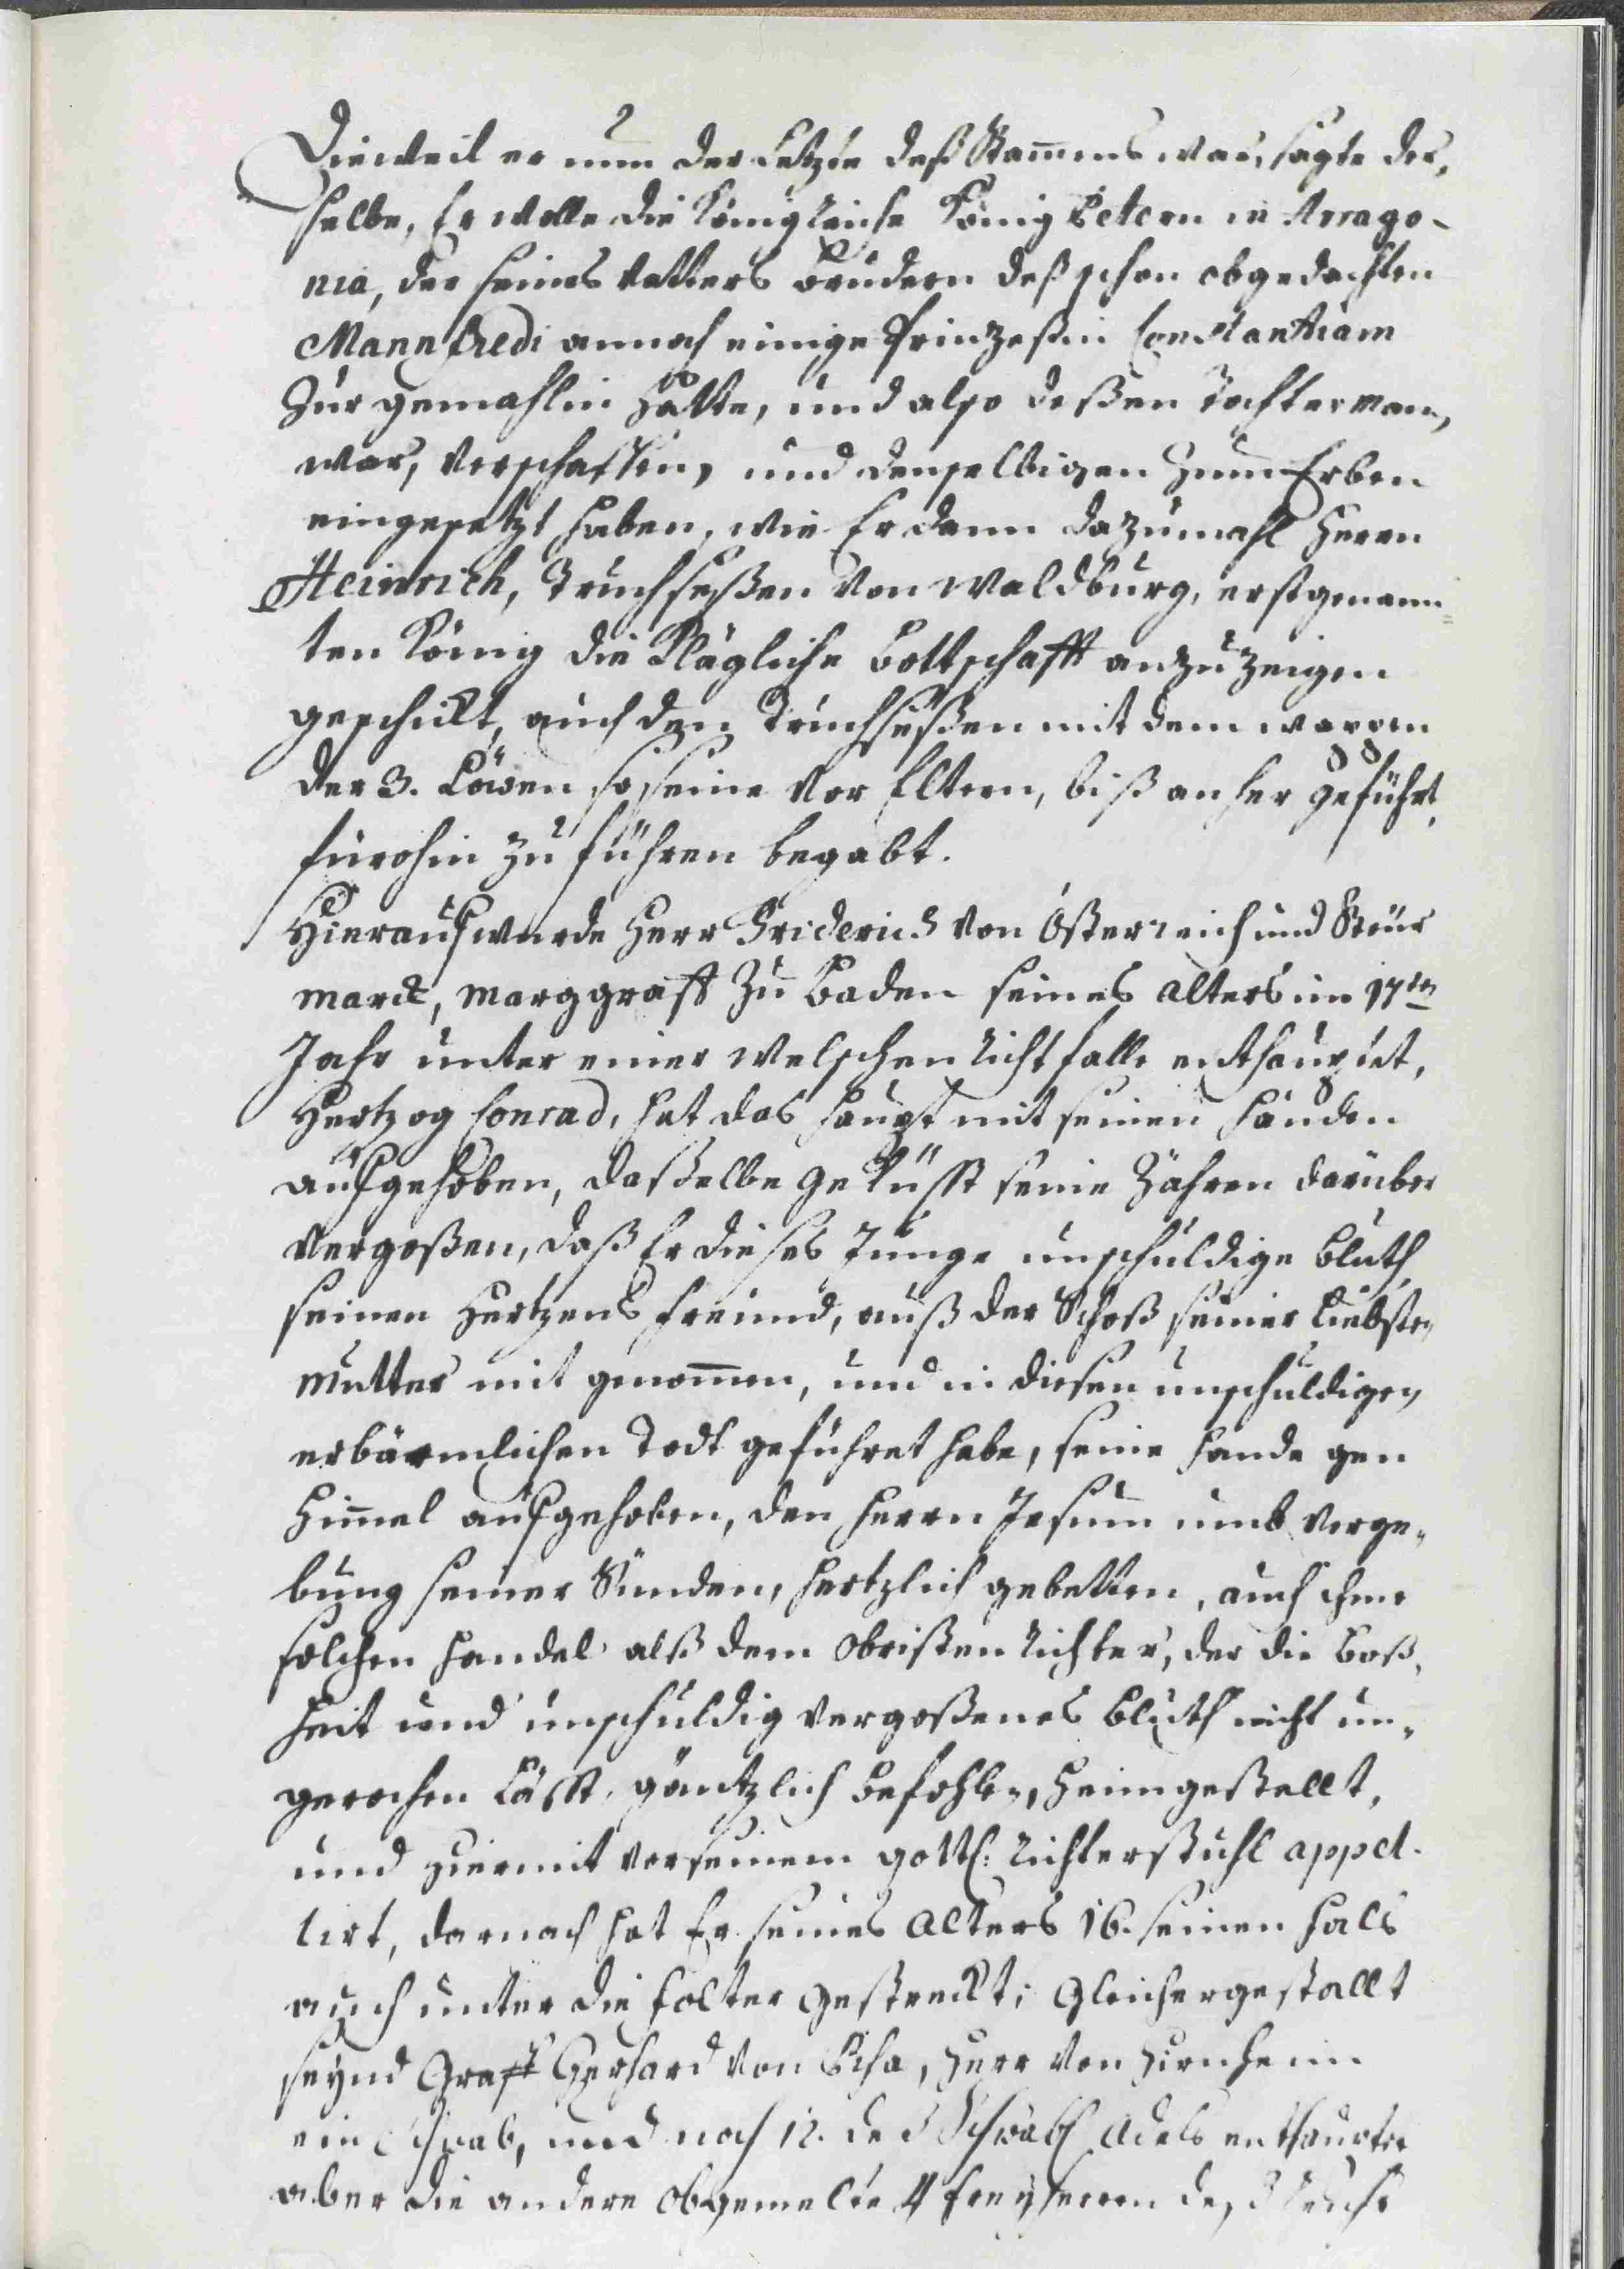 Dieweil er nun der Letzte deß Stammens war, sagte der,
selbe, Er wolle die Königreiche König Petern in Arrago-
nia, der seines Vatters Brudern deß schon obgedachten
Mannfredi annoch einige Prinzeßin Constantiam
Zur gemahlin hatte, und also deßen Tochterman,
war, verschaffen, und denselbigen zum Erben
eingesetzt haben, wie Er dann dazumahl Herrn
Heinrich, Truchseßen von Waldburg, erstgenann=
ten König die Klägliche Bottschafft anzuzeigen
geschickt, auch den Truchseßen mit dem wapen
der 3. Löwen so seine Vor Eltern, biß anher geführt,
fürohin zu führen begabt.
Hierauf wurde Herr Friderich von Ößterreich und Steür
marck, Marggraff zu Baden seines alters im 17ten
Jahr unter einer Welschen Richtfalle enthauptet,
Hertzog Conrad, hat das Haupt mit seinen händen
aufgehoben, daßelbe geküsst seine Zähren darüber
vergoßen, daß Er dieses Junge unschuldige Bluth
seinen Hertzens freund, auß der Schoß seiner Liebsten
Mutter mit genommen, und in diesen unschuldigen
erbärmlichen Todt geführet habe, seine Hände gen
Himmel aufgehoben, den Herrn Jesum umb verge,
bung seiner Sünden, hertzlich gebetten, auch ihme
solchen Handel alß dem Obristen Richter, der die Boß,
heit und unschuldig vergoßenes Bluth nicht un,
gerochen läßt, gäntzlich befohlen, heimgestellt,
und hiermit vor seinem göttl: Richterstuhl appel-
lirt, darnach hat Er seines Alters 16. seinen hals
auch unter die Folter gestreckt; Gleichergestallt
seynd Graff Gerhard von Pisa, Herr von Hirnheim
ein Schwab, und noch 12. deß Schwäb Adels enthauptet
aber die andere obgemelte 4 freyherrn deß Reichs